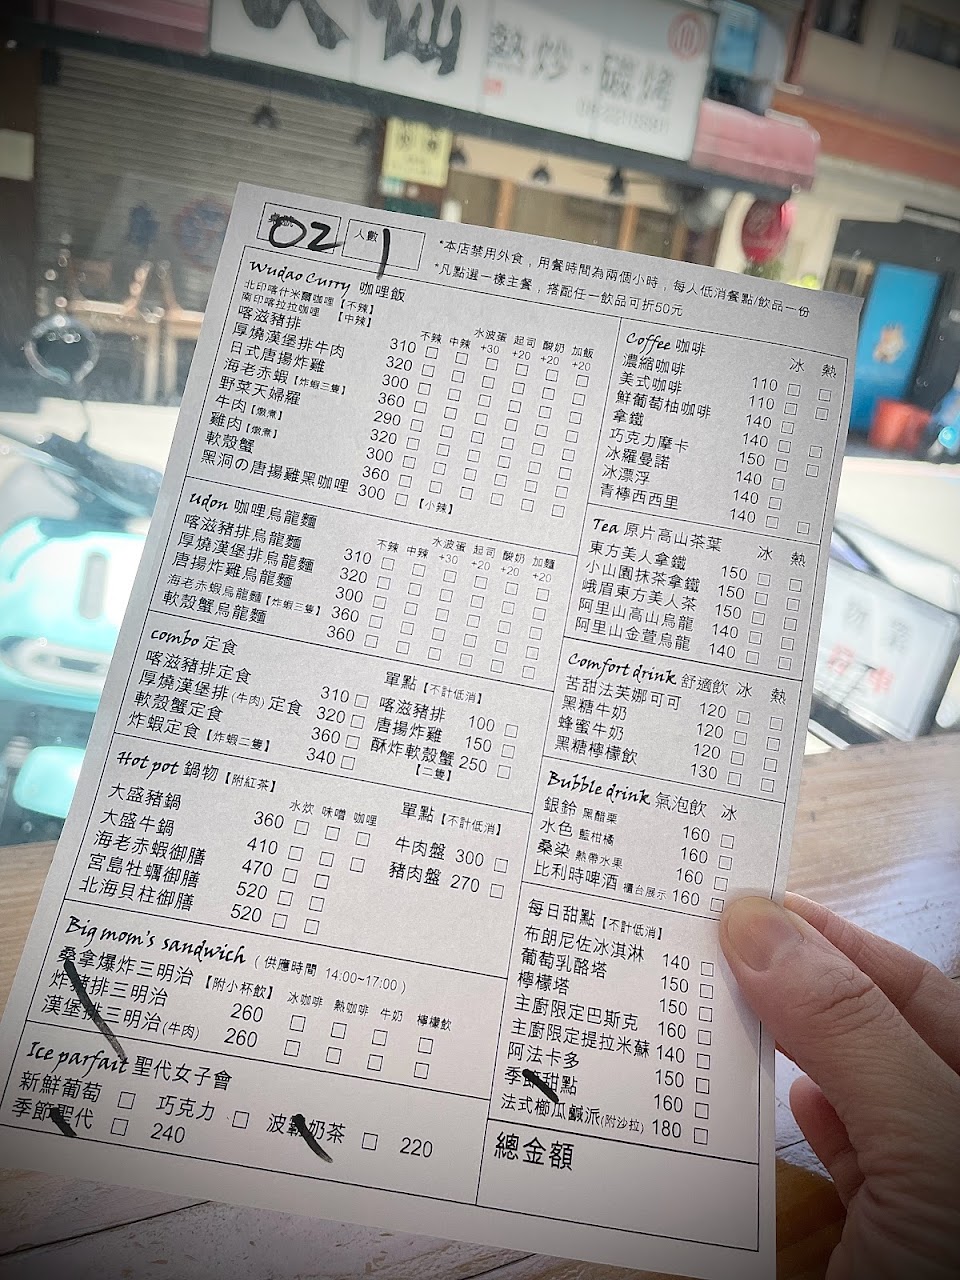 仙
熱炒·碳烤
桌號 02 人數 1
*本店禁用外食，用餐時間為兩個小時，每人低消餐點/飲品一份
*凡點選一樣主餐，搭配任一飲品可折50元
Wudao Curry 咖哩飯
北印喀什米爾咖哩【不辣】
南印喀拉拉咖哩 【中辣】
不辣 中辣 水波蛋+30 起司+20 酸奶+20 加飯+20
喀滋豬排 310
厚燒漢堡排牛肉 320
日式唐揚炸雞 300
海老赤蝦【炸蝦三隻】 360
野菜天婦羅 290
牛肉【燉煮】 320
雞肉【燉煮】 300
軟殼蟹 360
黑洞の唐揚雞黑咖哩 300 【小辣】
Udon 咖哩烏龍麵
不辣 中辣 水波蛋+30 起司+20 酸奶+20 加麵+20
喀滋豬排烏龍麵 310
厚燒漢堡排烏龍麵 320
唐揚炸雞烏龍麵 300
海老赤蝦烏龍麵【炸蝦三隻】 360
軟殼蟹烏龍麵 360
combo 定食
喀滋豬排定食 310
厚燒漢堡排(牛肉)定食 320
軟殼蟹定食 360
炸蝦定食【炸蝦二隻】 340
單點【不計低消】
喀滋豬排 100
唐揚炸雞 150
酥炸軟殼蟹 250
【二隻】
Hot pot 鍋物【附紅茶】
水炊 味噌 咖哩
大盛豬鍋 360
大盛牛鍋 410
海老赤蝦御膳 470
宮島牡蠣御膳 520
北海貝柱御膳 520
單點【不計低消】
牛肉盤 300
豬肉盤 270
Big mom's sandwich (供應時間 14:00~17:00)
桑拿爆炸三明治【附小杯飲】 冰咖啡 熱咖啡 牛奶 檸檬飲
炸豬排三明治 260
漢堡排三明治(牛肉) 260
Ice parfait 聖代女子會
新鮮葡萄 巧克力 波霸奶茶 220
季節聖代 240
Coffee 咖啡 冰 熱
濃縮咖啡 110
美式咖啡 110
鮮葡萄柚咖啡 140
拿鐵 140
巧克力摩卡 150
冰羅曼諾 140
冰漂浮 140
青檸西西里 140
Tea 原片高山茶葉 冰 熱
東方美人拿鐵 150
小山園抹茶拿鐵 150
峨眉東方美人茶 150
阿里山高山烏龍 140
阿里山金萱烏龍 140
Comfort drink 舒適飲 冰 熱
苦甜法芙娜可可 120
黑糖牛奶 120
蜂蜜牛奶 120
黑糖檸檬飲 130
Bubble drink 氣泡飲 冰
銀鈴 黑醋栗 160
水色 藍柑橘 160
桑染 熱帶水果 160
比利時啤酒 櫃台展示 160
每日甜點【不計低消】
布朗尼佐冰淇淋 140
葡萄乳酪塔 150
檸檬塔 150
主廚限定巴斯克 160
主廚限定提拉米蘇 140
阿法卡多 150
季節甜點 160
法式櫛瓜鹹派(附沙拉) 180
總金額